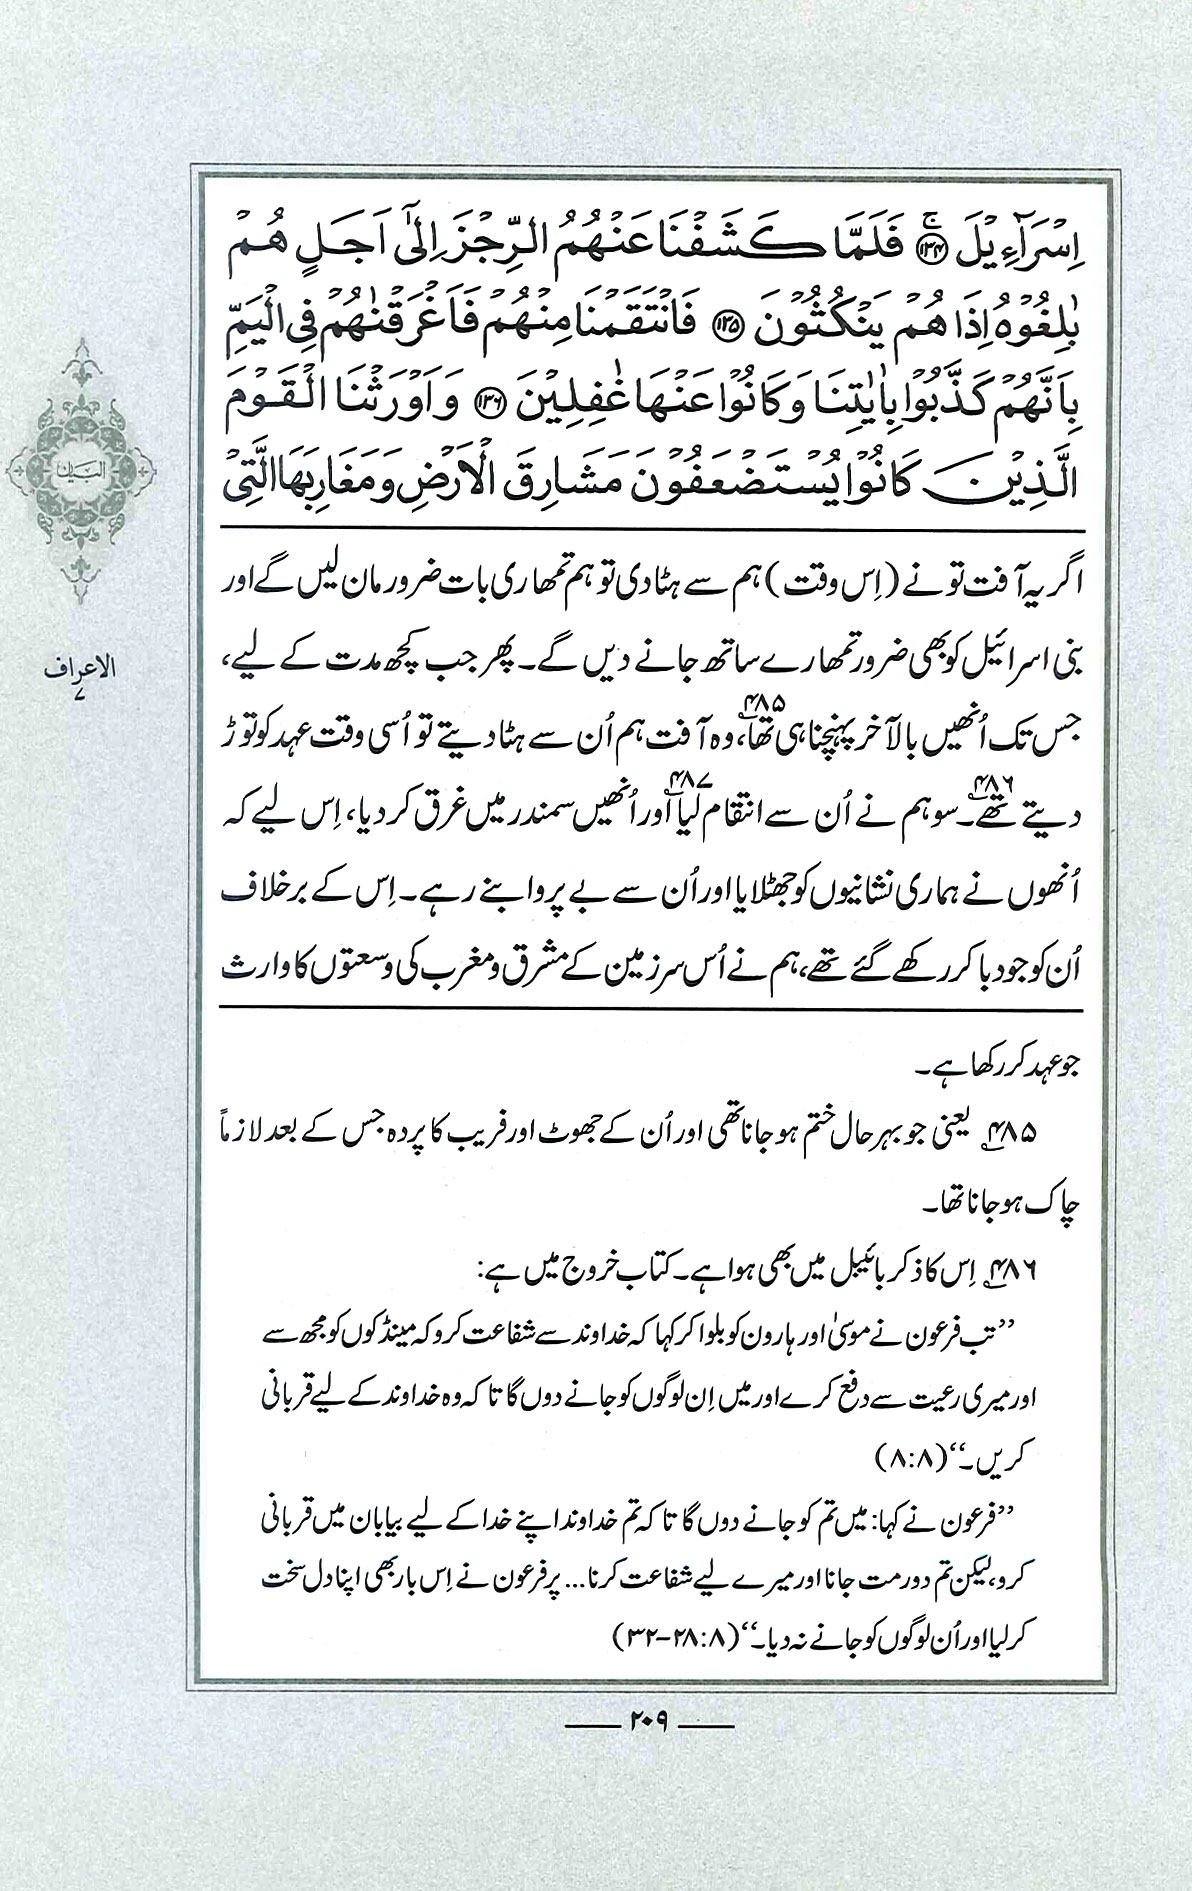 اِسْرَآءِيْلَ ﴿۱۳۴﴾ۚ فَلَمَّا كَشَفْنَا عَنْهُمُ الرِّجْزَ اِلٰٓى اَجَلٍ هُمْ
بٰلِغُوْهُ اِذَا هُمْ يَنْكُثُوْنَ ﴿۱۳۵﴾ فَانْتَقَمْنَا مِنْهُمْ فَاَغْرَقْنٰهُمْ فِى الْيَمِّ
بِاَنَّهُمْ كَذَّبُوْا بِاٰيٰتِنَا وَكَانُوْا عَنْهَا غٰفِلِيْنَ ﴿۱۳۶﴾ وَاَوْرَثْنَا الْقَوْمَ
الَّذِيْنَ كَانُوْا يُسْتَضْعَفُوْنَ مَشَارِقَ الْاَرْضِ وَمَغَارِبَهَا الَّتِىْ
اگر یہ آفت تو نے (اِس وقت) ہم سے ہٹا دی تو ہم تمھاری بات ضرور مان لیں گے اور
بنی اسرائیل کو بھی ضرور تمھارے ساتھ جانے دیں گے۔ پھر جب کچھ مدت کے لیے،
جس تک اُنھیں بالآخر پہنچنا ہی تھا۴۸۵، وہ آفت ہم اُن سے ہٹا دیتے تو اُسی وقت عہد کو توڑ
دیتے تھے۴۸۶۔ سو ہم نے اُن سے انتقام لیا۴۸۷ اور اُنھیں سمندر میں غرق کر دیا، اِس لیے کہ
اُنھوں نے ہماری نشانیوں کو جھٹلایا اور اُن سے بے پروا بنے رہے۔ اِس کے برخلاف
اُن کو جو دبا کر رکھے گئے تھے، ہم نے اُس سرزمین کے مشرق و مغرب کی وسعتوں کا وارث
جو عہد کر رکھا ہے۔
۴۸۵ یعنی جو بہرحال ختم ہو جانا تھی اور اُن کے جھوٹ اور فریب کا پردہ جس کے بعد لازماً
چاک ہو جانا تھا۔
۴۸۶ اِس کا ذکر بائیبل میں بھی ہوا ہے۔ کتاب خروج میں ہے:
’’تب فرعون نے موسیٰ اور ہارون کو بلوا کر کہا کہ خداوند سے شفاعت کرو کہ مینڈکوں کو مجھ سے
اور میری رعیت سے دفع کرے اور میں اِن لوگوں کو جانے دوں گا تاکہ وہ خداوند کے لیے قربانی
کریں۔‘‘ (۸:۸)
’’فرعون نے کہا: میں تم کو جانے دوں گا تاکہ تم خداوند اپنے خدا کے لیے بیابان میں قربانی
کرو، لیکن تم دور مت جانا اور میرے لیے شفاعت کرنا... پر فرعون نے اِس بار بھی اپنا دل سخت
کر لیا اور اُن لوگوں کو جانے نہ دیا۔‘‘ (۸:۲۸-۳۲)
البیان
الاعراف
۷
۲۰۹